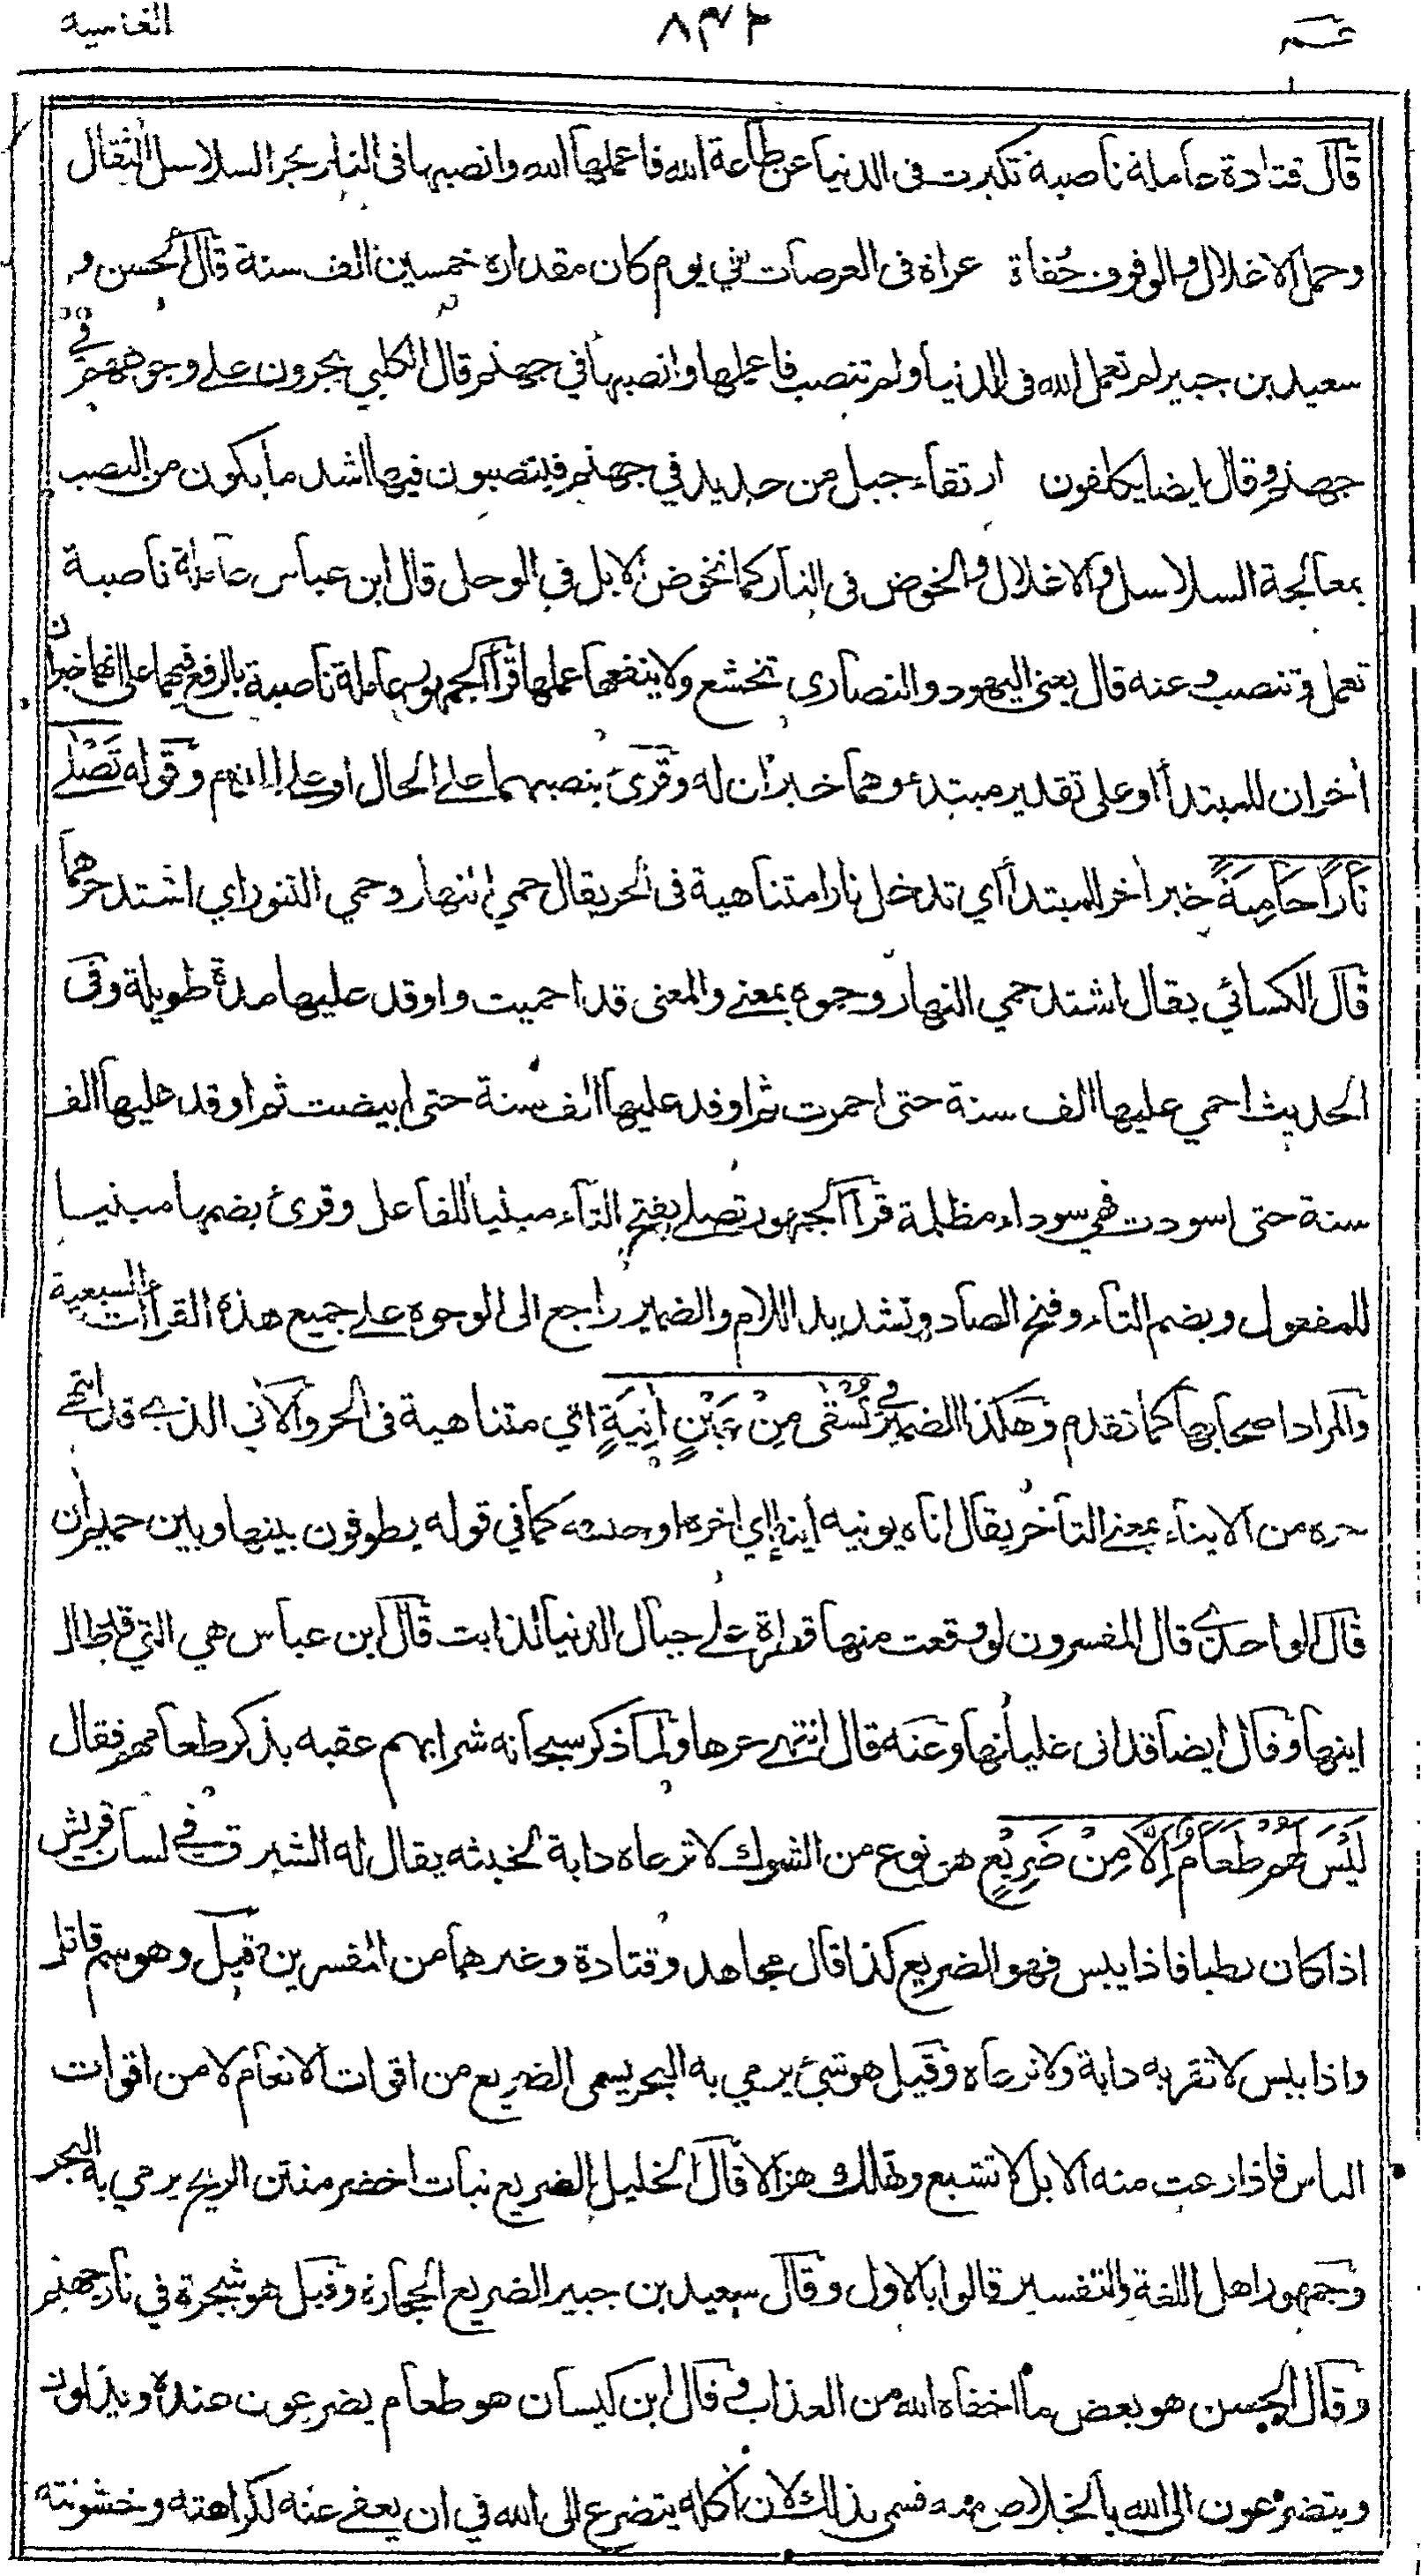 عم ٨٣٢ الغاشية
قال قتادة عاملة ناصبة تكبرت فى الدنيا عن طاعة الله فاعملها الله وانصبها فى النار بجر السلاسل الثقال
وحمل الاغلال والوقوف حُفاة عراة فى العرصات في يوم كان مقداره خمسين الف سنة قال الحسن و
سعيد بن جبير لم تعمل لله فى الدنيا ولم تنصب فاعملها وانصبها في جهنم قال الكلبي يجرون على وجوههم في
جهنم وقال ايضا يكلفون ارتقاء جبل من حديد في جهنم فينصبون فيها اشد ما يكون من النصب
بمعالجة السلاسل والاغلال والخوض فى النار كما تخوض الابل في الوحل قال ابن عباس عاملة ناصبة
تعمل وتنصب وعنه قال يعني اليهود والنصارى تخشع ولا ينفعها عملها قرأ الجمهور عاملة ناصبة بالرفع فيهما على انهما خبران
أخران للمبتدأ او على تقدير مبتدء وهما خبران له وقرئ بنصبهما على الحال او على الذم وقوله تَصْلٰى
نَارًا حَامِيَةً خبر اخر للمبتدأ أي تدخل نارا متناهية فى الحر يقال حمي النهار وحمي التنور اي اشتد حرهما
قال الكسائي يقال اشتد حمي النهار وحموه بمعنى والمعنى قد احميت واوقد عليها مدة طويلة وفى
الحديث احمي عليها الف سنة حتى احمرت ثم اوقد عليها الف سنة حتى ابيضت ثم اوقد عليها الف
سنة حتى اسودت فهي سوداء مظلمة قرأ الجمهور تصلى بفتح التاء مبنيا للفاعل وقرئ بضمها مبنيا
للمفعول وبضم التاء وفتح الصاد وتشديد اللام والضمير راجع الى الوجوه على جميع هذه القراأت السبعية
والمراد اصحابها كما تقدم وهكذا الضمير في تُسْقٰى مِنْ عَيْنٍ اٰنِيَةٍ اي متناهية فى الحر والآني الذي قد انتهى
حره من الايناء بمعنى التأخر يقال اناه يونيه أينا إي اخره وحبسه كما في قوله يطوفون بينها وبين حميم ان
قال الواحدي قال المفسرون لو وقعت منها قطرة على جبال الدنيا لذابت قال ابن عباس هي التي قد طال
اينها وقال ايضا قد انى غليانها وعنه قال انتهى حرها ولما ذكر سبحانه شرابهم عقبه بذكر طعامهم فقال
لَيْسَ لَهُمْ طَعَامٌ اِلَّا مِنْ ضَرِيْعٍ هو نوع من الشوك لا ترعاه دابة لخبثه يقال له الشبرق في لسان قريش
اذا كان رطبا فاذا يبس فهو الضريع كذا قال مجاهد وقتادة وغيرهما من المفسرين قيل وهو سم قاتل
واذا يبس لا تقربه دابة ولا ترعاه وقيل هو شيء يرمي به البحر يسمى الضريع من اقوات الانعام لا من اقوات
الناس فاذا رعت منه الابل لا تشبع وتهلك هزالا قال الخليل الضريع نبات اخضر منتن الريح يرمي به البحر
وجمهور اهل اللغة والتفسير قالوا بالاول وقال سعيد بن جبير الضريع الحجارة وقيل هو شجرة في نار جهنم
وقال الحسن هو بعض ما اخفاه الله من العذاب وقال ابن كيسان هو طعام يضرعون عنده ويذلون
ويتضرعون الى الله بالخلاص منه فسمى بذلك لان أكله يتضرع الى الله في ان يعفى عنه لكراهته وخشونته